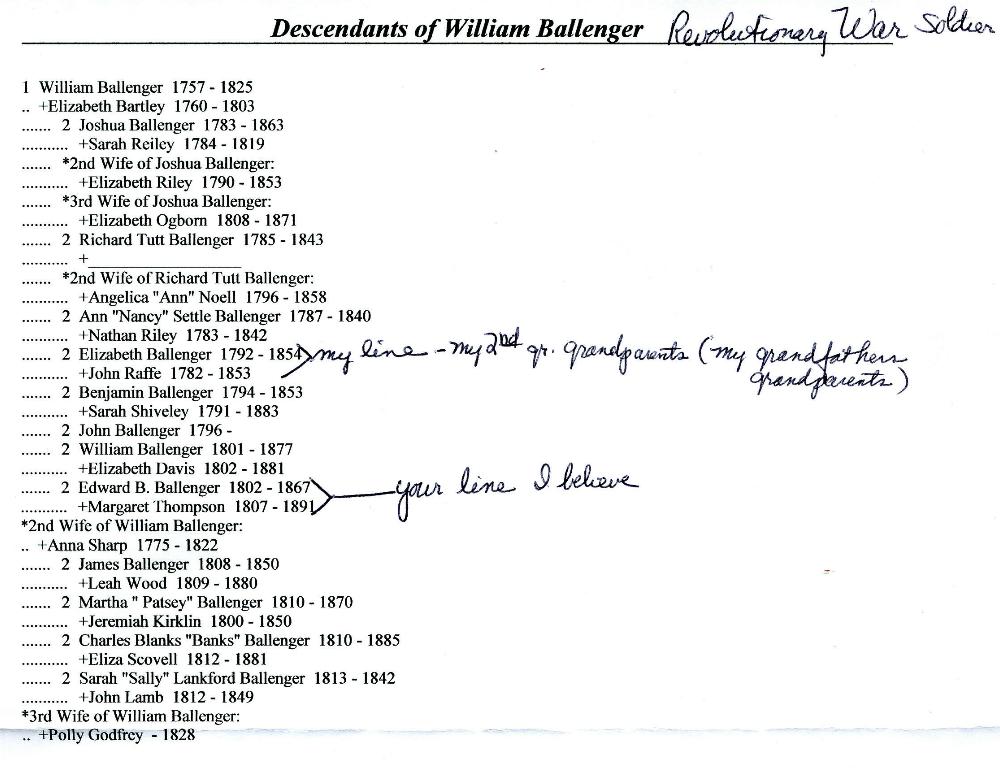 Descendants of William Ballenger Revolutionary War Soldier
1 William Ballenger 1757 - 1825
.. +Elizabeth Bartley 1760 - 1803
....... 2 Joshua Ballenger 1783 - 1863
........... +Sarah Reiley 1784 - 1819
....... *2nd Wife of Joshua Ballenger:
........... +Elizabeth Riley 1790 - 1853
....... *3rd Wife of Joshua Ballenger:
........... +Elizabeth Ogborn 1808 - 1871
....... 2 Richard Tutt Ballenger 1785 - 1843
........... +____________________
....... *2nd Wife of Richard Tutt Ballenger:
........... +Angelica "Ann" Noell 1796 - 1858
....... 2 Ann "Nancy" Settle Ballenger 1787 - 1840
........... +Nathan Riley 1783 - 1842
....... 2 Elizabeth Ballenger 1792 - 1854 my line - my 2nd gr. grandparents (my grandfathers
........... +John Raffe 1782 - 1853 grandparents)
....... 2 Benjamin Ballenger 1794 - 1853
........... +Sarah Shiveley 1791 - 1883
....... 2 John Ballenger 1796 -
....... 2 William Ballenger 1801 - 1877
........... +Elizabeth Davis 1802 - 1881
....... 2 Edward B. Ballenger 1802 - 1867 your line I believe
........... +Margaret Thompson 1807 - 1891
*2nd Wife of William Ballenger:
.. +Anna Sharp 1775 - 1822
....... 2 James Ballenger 1808 - 1850
........... +Leah Wood 1809 - 1880
....... 2 Martha " Patsey" Ballenger 1810 - 1870
........... +Jeremiah Kirklin 1800 - 1850
....... 2 Charles Blanks "Banks" Ballenger 1810 - 1885
........... +Eliza Scovell 1812 - 1881
....... 2 Sarah "Sally" Lankford Ballenger 1813 - 1842
........... +John Lamb 1812 - 1849
*3rd Wife of William Ballenger:
.. +Polly Godfrey - 1828